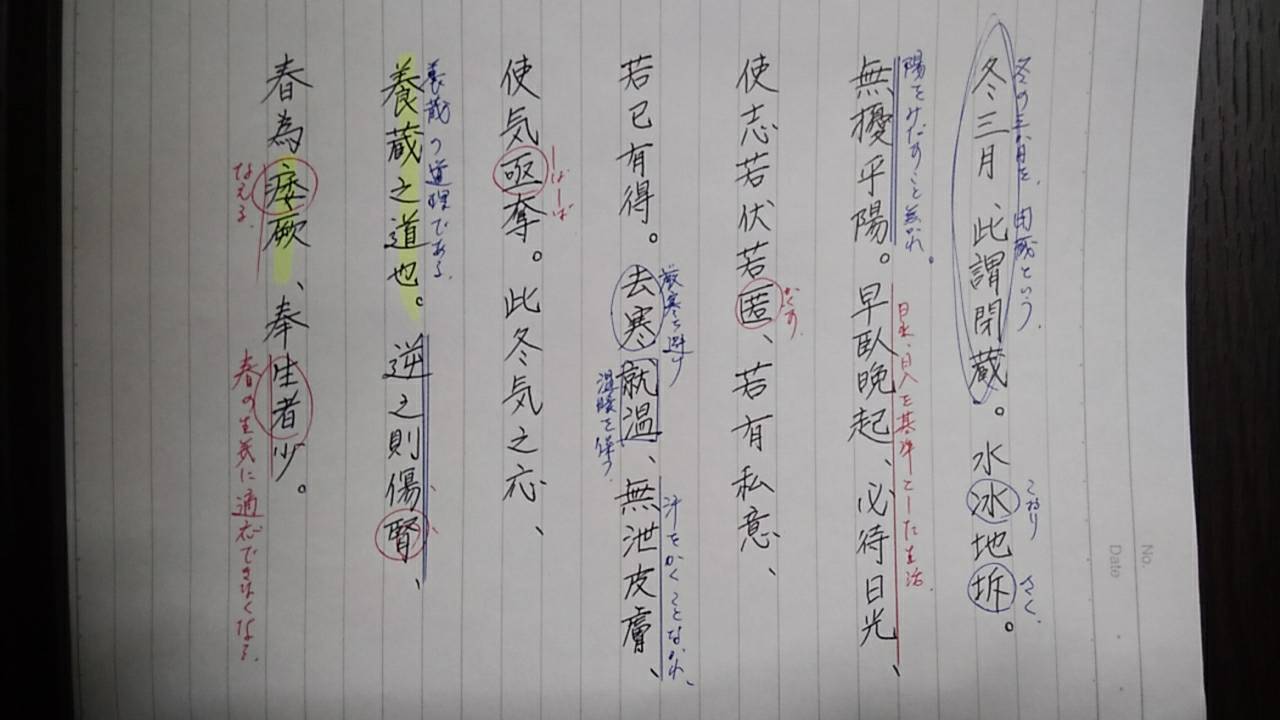 冬の三か月を、閉蔵という。
冬三月、此謂閉蔵。水冰地坼。
こおり
さく。
陽をみだすこと無かれ。
日出、日入を基準とした生活。
無擾平陽。早臥晩起、必待日光、
使志若伏若匿、若有私意、
かくす。
若已有得。去寒就温、無泄皮膚、
厳寒を避け
温暖を保つ
汗をかくことなかれ、
使気亟奪。此冬気之応、
しばしば
養蔵の道理である。
養蔵之道也。逆之則傷腎、
春為痿厥、奉生者少。
なえる。
春の生気に適応できなくなる。
No.
Date